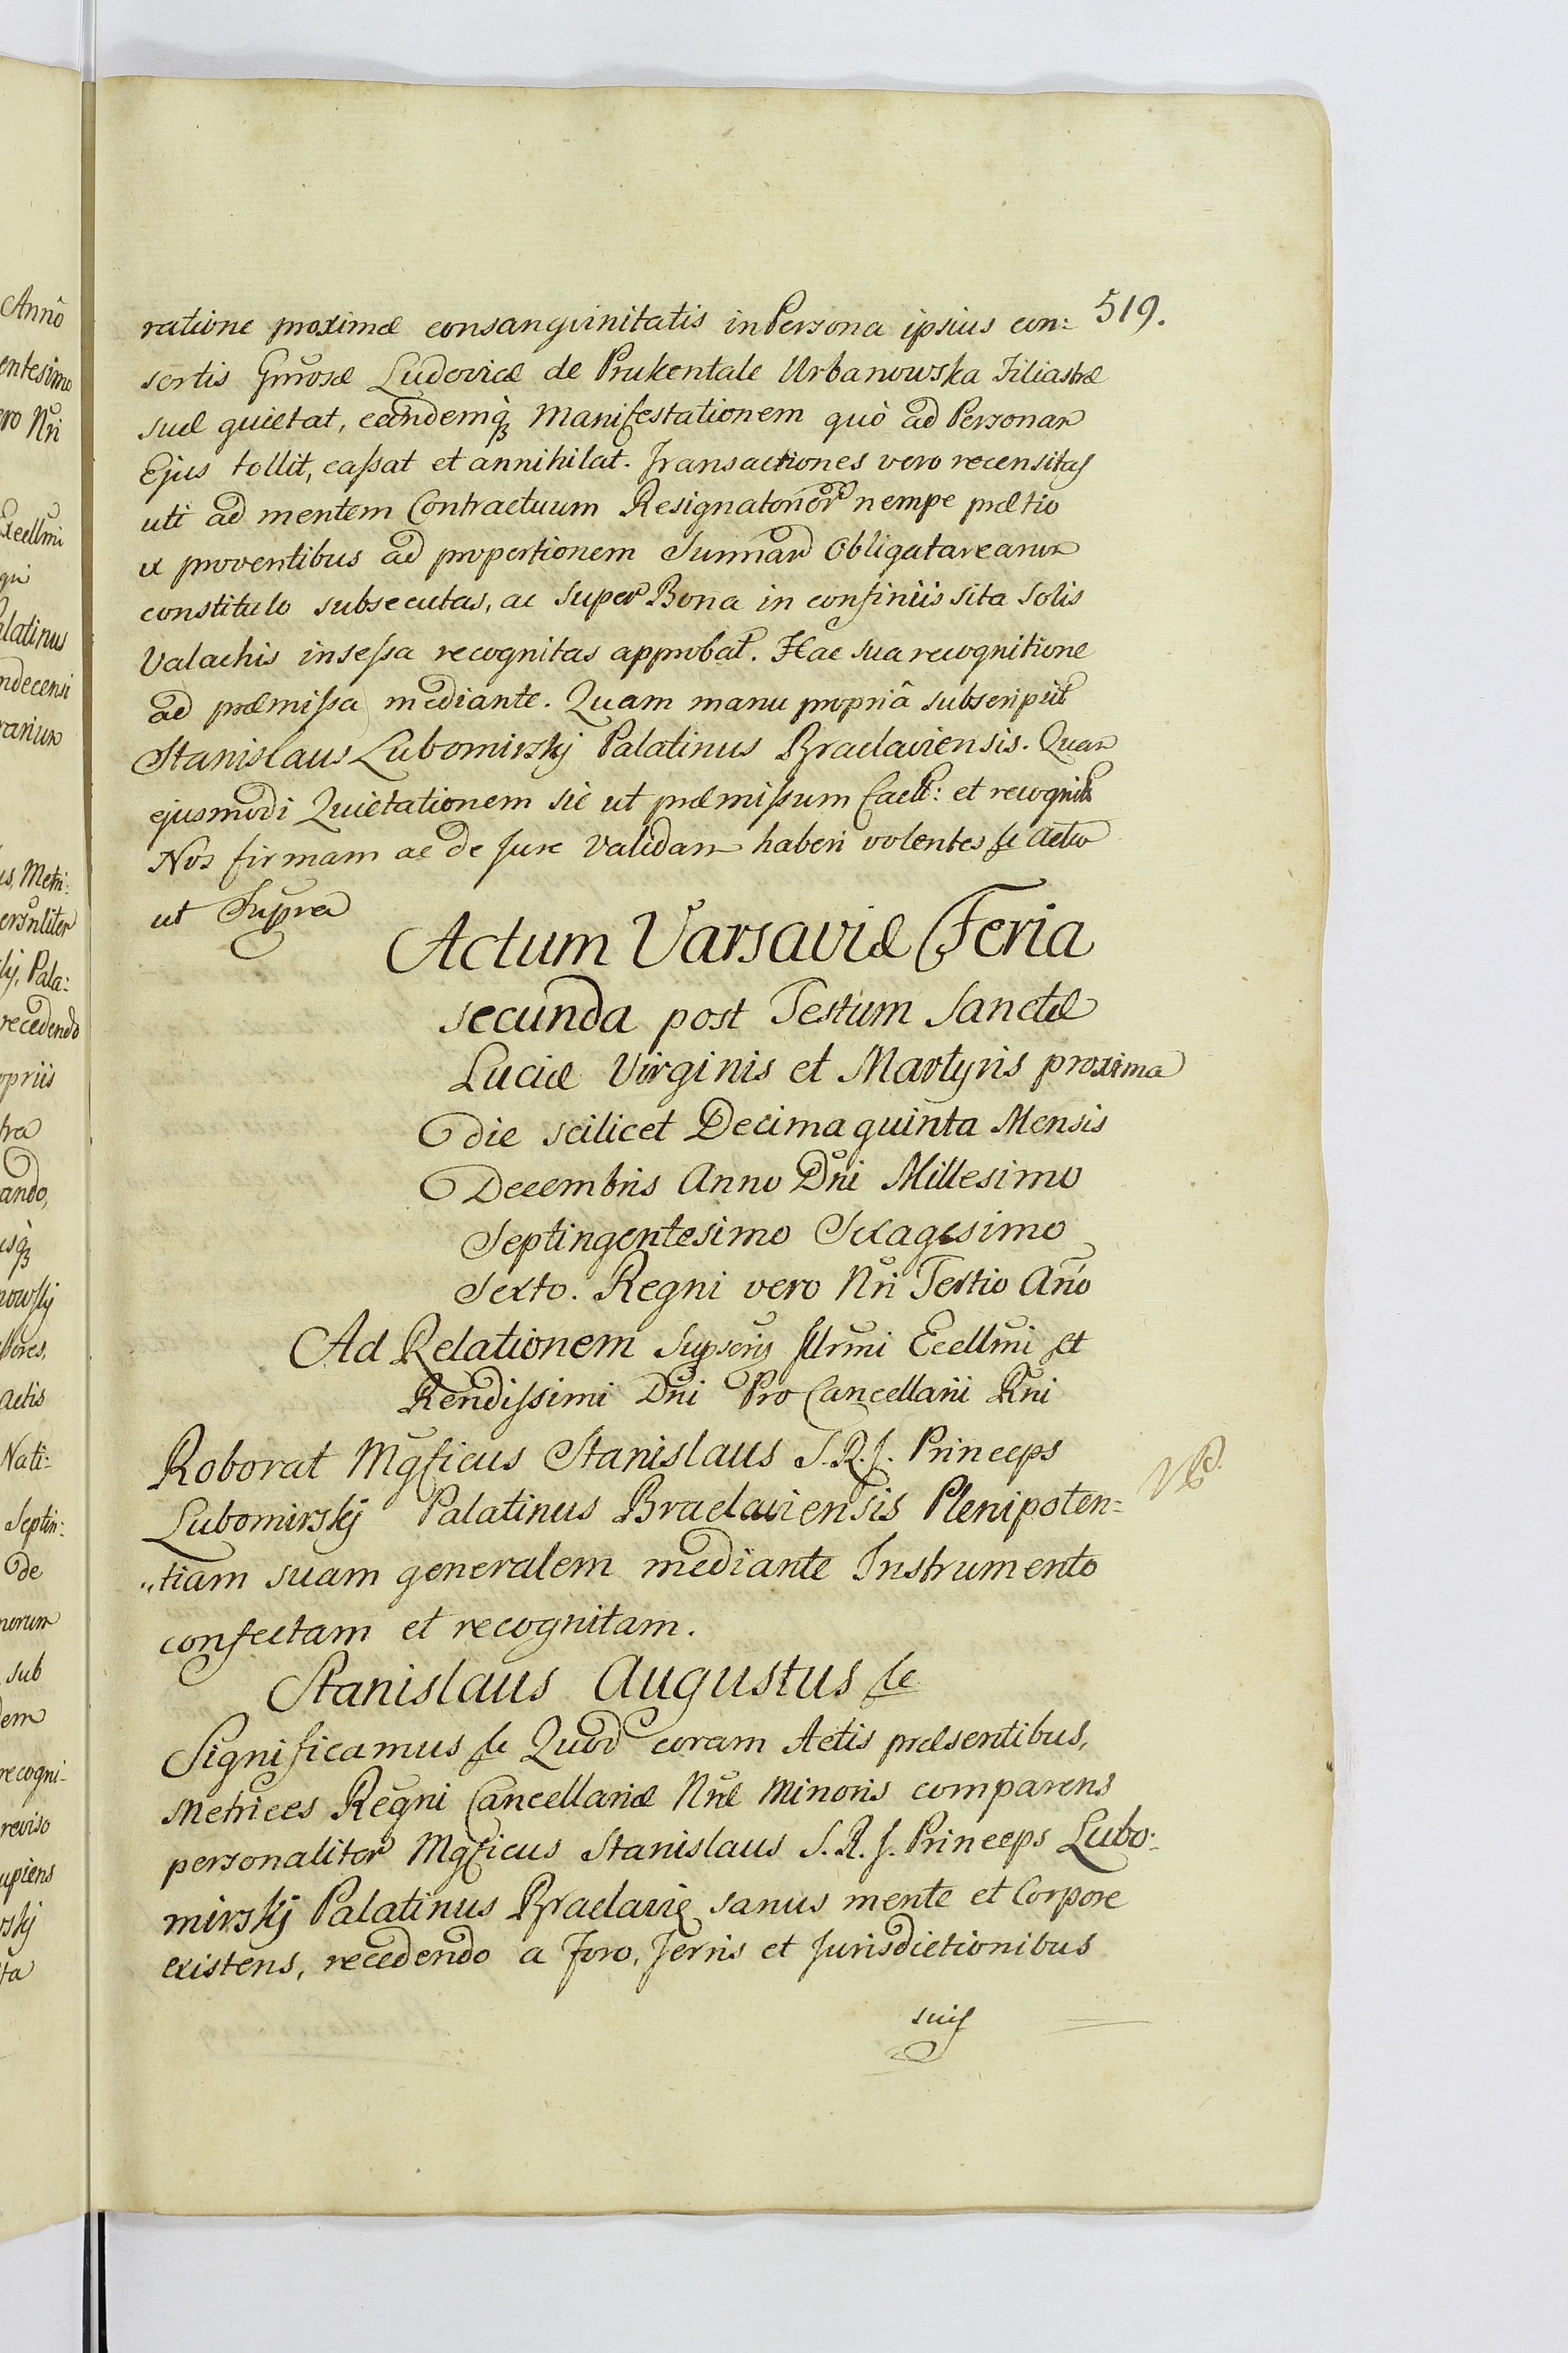 519.
ratione proximæ consangvinitatis in Persona ipsius con:
sortis Gnrosæ Ludovicæ de Prukentale Urbanowska Filiastræ
suæ quietat, eandemq́ꝫ Manifestationem quò ad Personam
Ejus tollit, cassat et annihilat. Transactiones vero recensitas
uti ad mentem Contractuum Resignatonor̃ nempe prætio
ex proventibus ad proportionem Summar̃ Obligatarearum
constituto subsecutas, ac super Bona in confiniis sita solis
Valachis insessa recognitas approbat. Hac sua recognitione
ad præmissa mediante. Quam manu propriâ subscripsit
Stanislaus Lubomirskij Palatinus Braclaviensis. Quam
ejusmodi Quietationem sic ut præmissum factt: et recognit
Nos firmam ac de Jure validam haberi volentes &c Actum
ut Supra
Actum Varsaviæ Feria
secunda post Festum Sanctæ
Luciæ Virginis et Martyris proxima
die scilicet Decima quinta Mensis
Decembris Anno Dni Millesimo
Septingentesimo Sexagesimo
Sexto. Regni vero Nri Tertio Año
Ad Relationem Supscrip Illrmi Ecellmi et
Rendissimi Dni Pro Cancellarii Rni
Roborat Mgficus Stanislaus S. R. J. Princeps
Lubomirskij Palatinus Braclaviensis Plenipoten=
„tiam suam generalem mediante Instrumento
confectam et recognitam.
Stanislaus Augustus &c
Significamus &c Quod coram Actis præsentibus,
Metrices Regni Cancellariæ Nræ Minoris comparens
personaliter Mgficus Stanislaus S. R. J. Princeps Lubo:
mirskij Palatinus Braclavię sanus mente et Corpore
existens, recedendo a Foro, Terris et Jurisdictionibus
suis